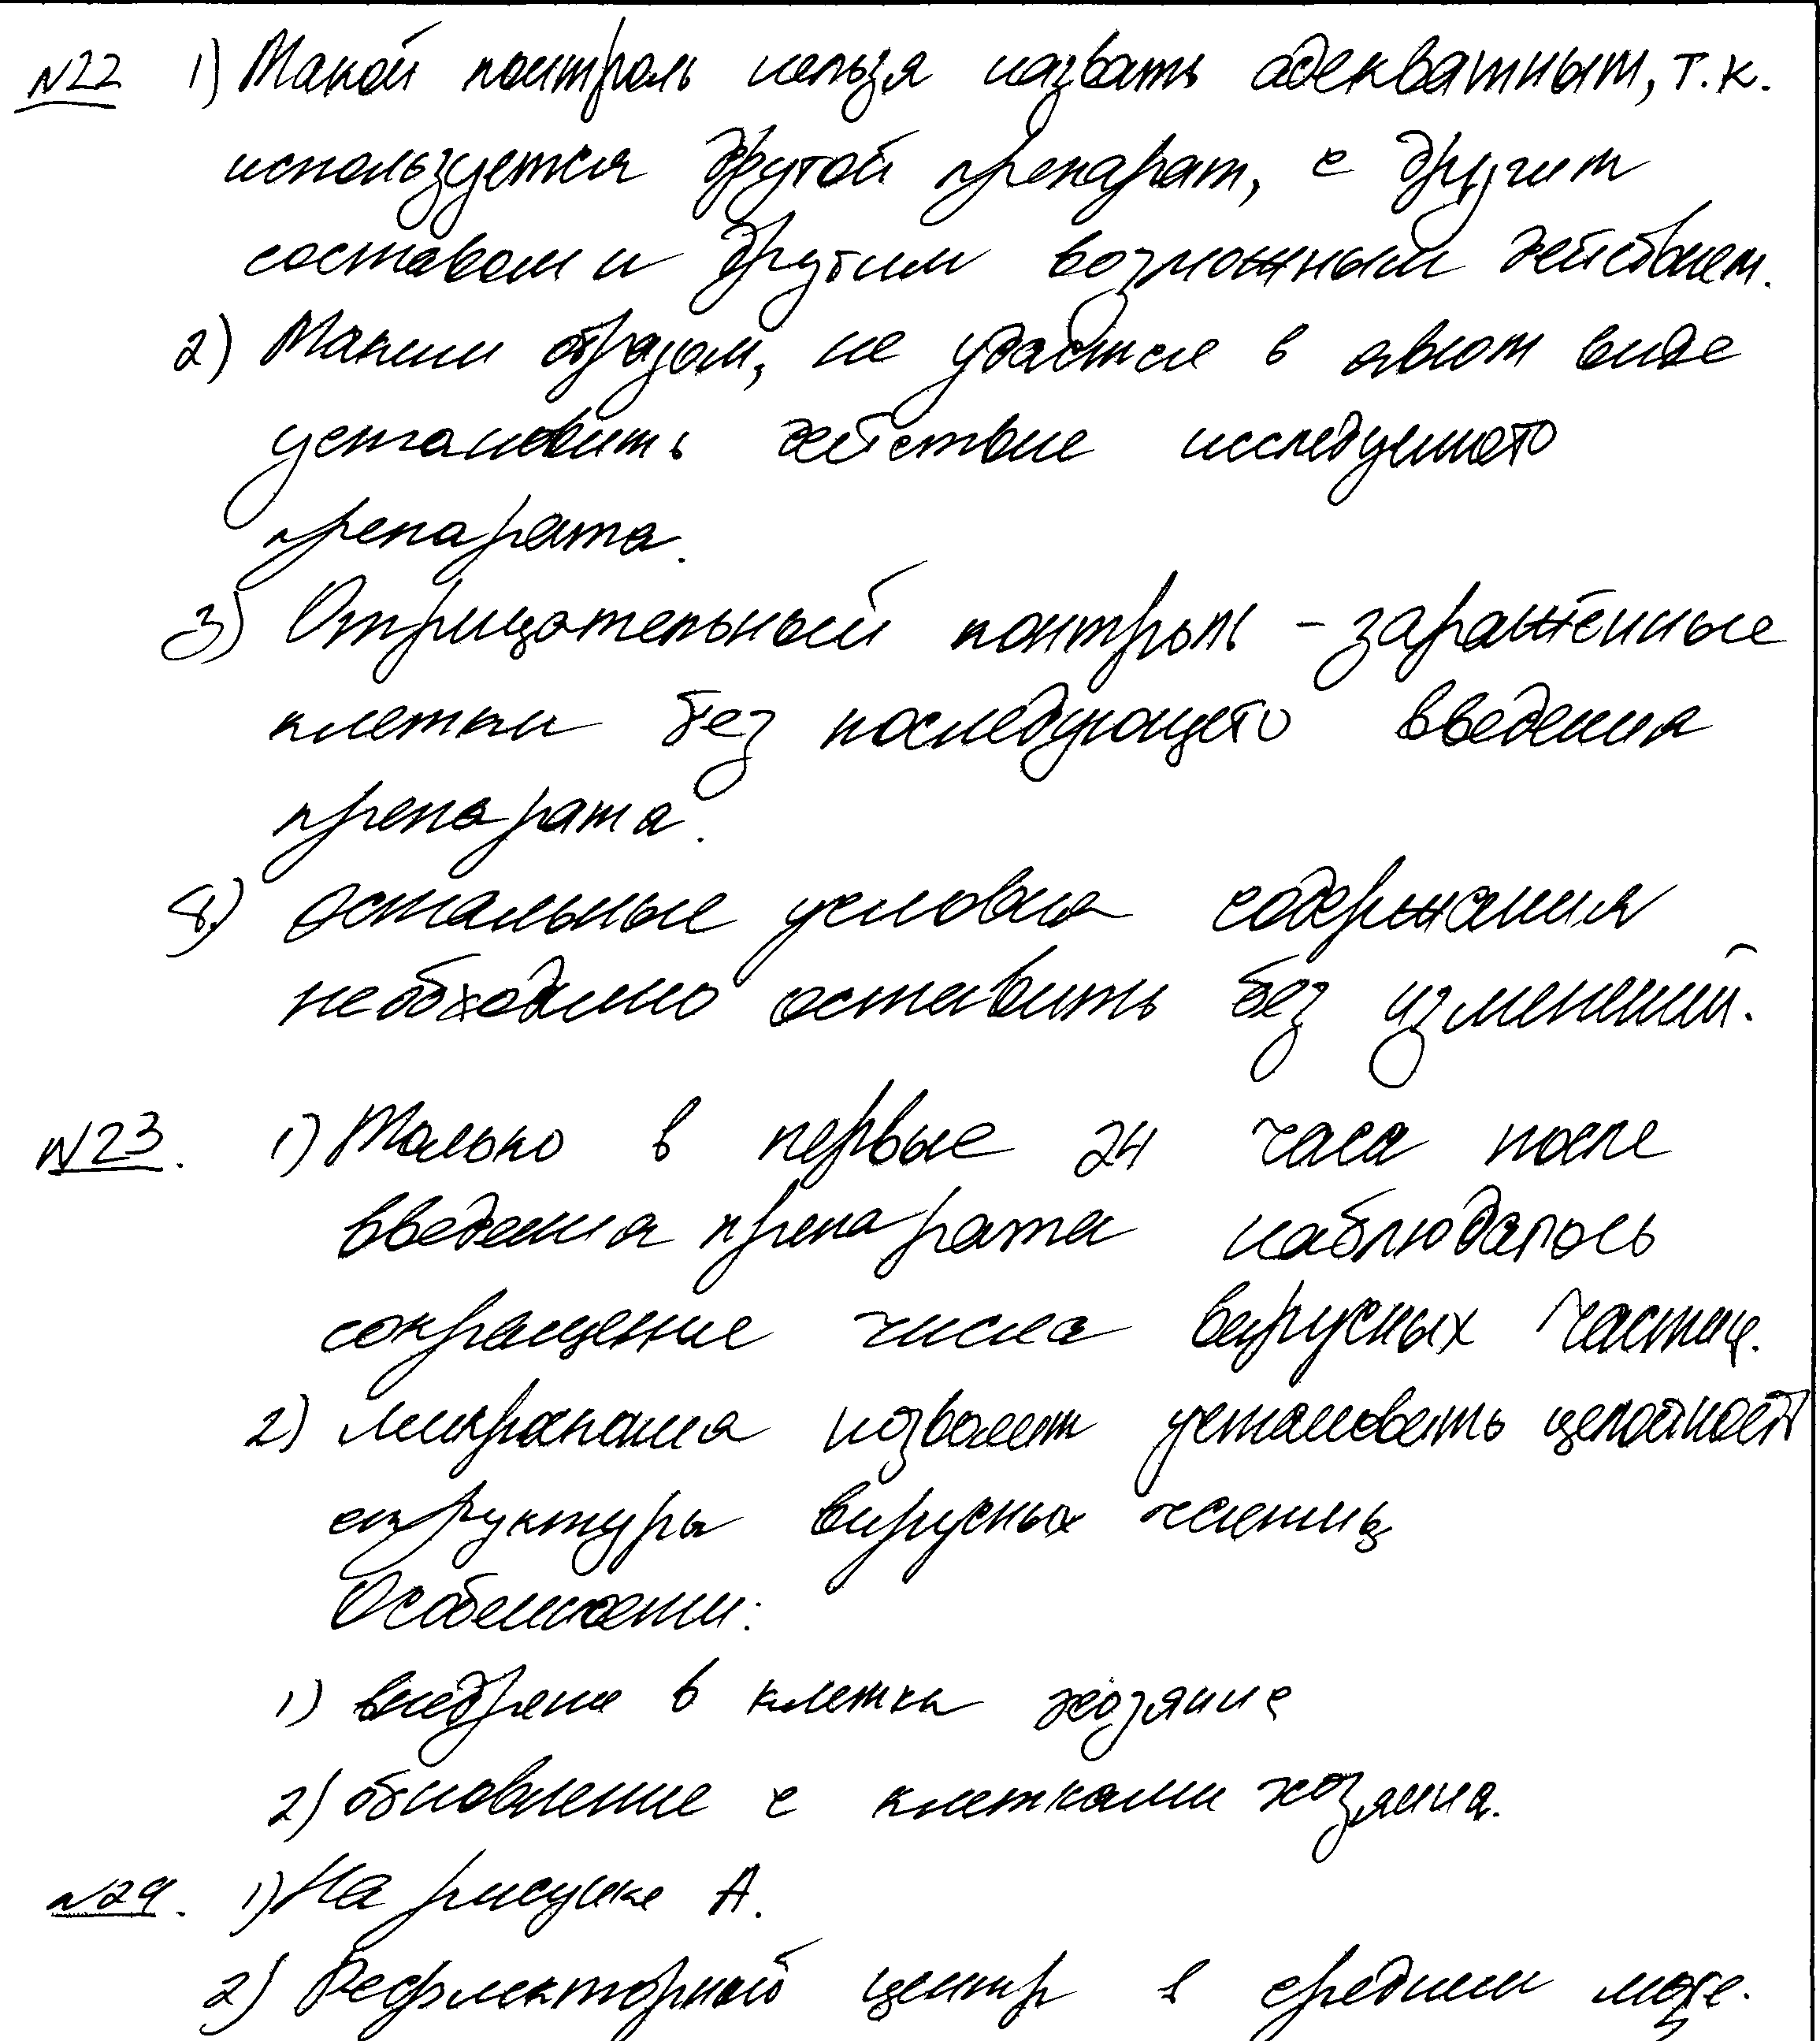 №22 1) Такой контроль нельзя назвать адекватным, т.к.
используется другой препарат, с другим
составом и другим возможным действием.
2) Таким образом, не удастся в явном виде
установить действие исследуемого
препарата.
3) Отрицательный контроль - заражённые
клетки без последующего введения
препарата.
4) Остальные условия содержания
необходимо оставить без изменений.
№23. 1) Только в первые 24 часа после
введения препарата наблюдалось
сокращение числа вирусных частиц.
2) микроскопия позволяет установить целостность
структуры вирусных частиц
Особенности:
1) внедрение в клетки хозяина
2) обновление с клетками хозяина.
№24. 1) На рисунке А.
2) Рефлекторный центр в среднем мозге.